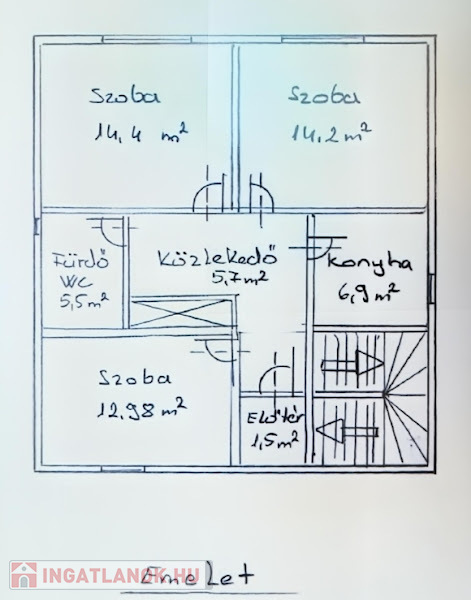 Szoba
14,4 m²
Szoba
14,2 m²
Fürdő
WC
5,5 m²
Közlekedő
5,7 m²
Konyha
6,9 m²
Szoba
12,98 m²
Előtér
1,5 m²
Emelet
INGATLANOK.HU